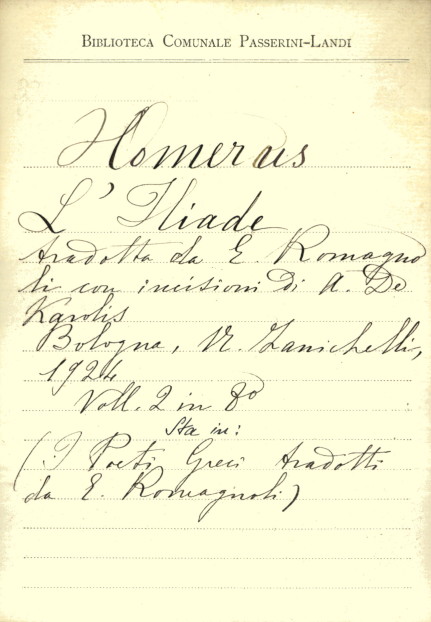 BIBLIOTECA COMUNALE PASSERINI-LANDI
Homerus
L'Iliade
tradotta da E. Romagno
li con incisioni di A. De
Karolis
Bologna, N. Zanichelli,
1924
Voll. 2 in 8º
Sta in:
(I Poeti Greci tradotti
da E. Romagnoli)